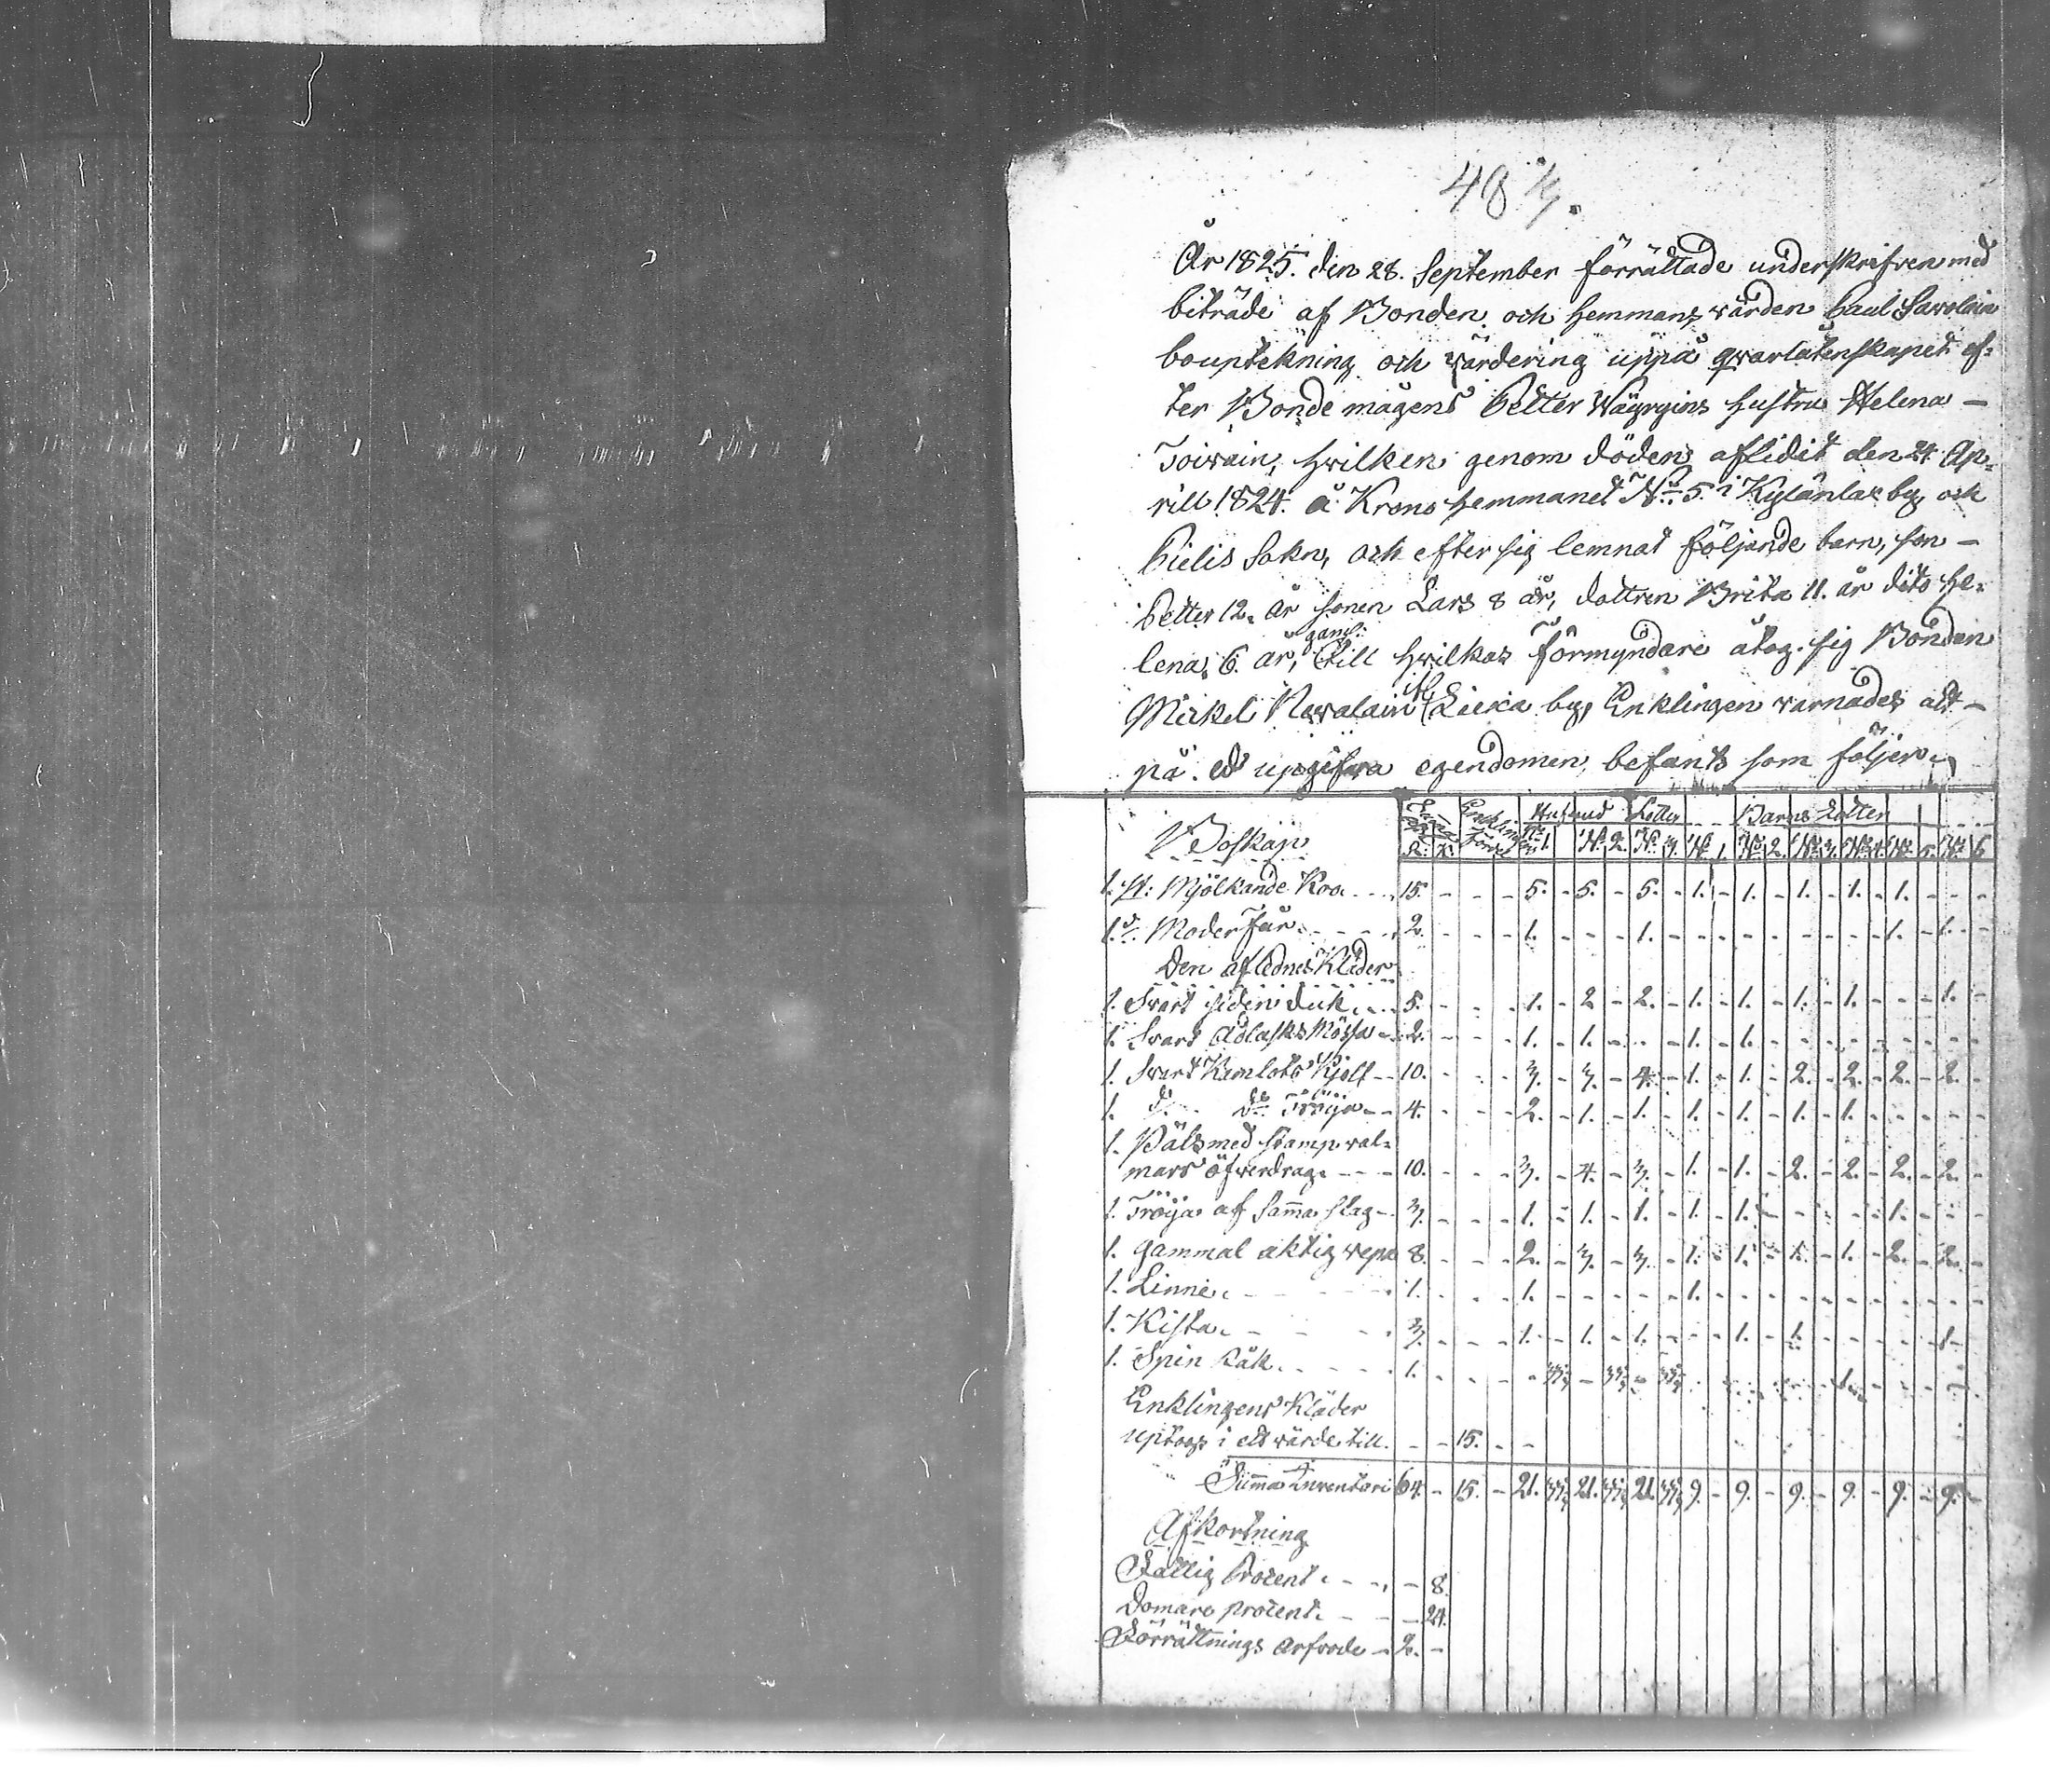 År 1825. den 28. September förrättade underskrifven med
biträde af Bonden och hemmans wärden Paul Sawolain
bouptekning och wärdering uppå qwarlåtenskapet ef-
ter Bonde mågens Petter Wäyrysins hustru Helena –
Toiwain, hwilken genom döden aflidit den 24 Ap-
rill 1824. å Krono hemmanet No 5. i Kylänlax by och
Pielis Sokn, och efter sig lemnat följande barn, son –
Petter 12. år sonen Lars 8 år, dottren Brita 11. år dito He-
lena, 6. år, gaml: till hwilkas förmyndare åtog sig Bonden
Mickel Newalain Liexa by, Enklingen warnades att –
på ed upgifwa egendomen, befants som följer
Boskap
Hufwud Lotter
Barns Lotter
R. K. No 1. No 2. No 3. No 1. No 2. No 3. No 4. No 5. No 6
1. st: Mjölkande Koo 15. – – – 5. – 5. – 5. – 1. – 1. – 1. – 1. – 1. – – –
1. d: Moder Får 2. – – – 1. – – – 1. – – – – – – – – – 1. – 1. –
Den aflednes Kläder
1. Svart siden duk 5. – – – 1. – 2 – 2. – 1. – 1. – 1. – 1. – – – 1. –
1. Svart Adlasks Mössa 2. – – – 1. – 1. – – – 1. – 1. – – – – – – – –
1. Svart Kamlots Kjoll 10. – – – 3. – 3. – 4. – 1. – 1. – 2. – 2. – 2. – 2. –
1. do do Tröija 4. – – – 2. – 1. – 1. – 1. – 1. – 1. – 1. – – – –
1. Päls med stamp wal-
mars öfwerdrag 10. – – – 3. – 4. – 3. – 1. – 1. – 2. – 2. – 2. – 2. –
1. Tröija af samma slag 3. – – – 1. – 1. – 1. – 1. – 1. – – – – – 1. – – –
1. gammal aktig repa 8. – – – 2. – 3. – 3. – 1. – 1. – 1. – 1. – 2. – 2. –
1. Linne 1. 1. – – – – – 1. – – – – – – – – – –
1. Kista 3. – – – 1. – 1. – 1. – – – 1. – 1. – – – – – 1 –
1. Spin Råk 1.
Enklingens Kläder
uptogs i ett wärde till – – 15. – –
Summa Inventari 64 – 15. – 21. 21. 21. 9. – 9. – 9. – 9. – 9. – 9. –
Afkortning
Fattig Procent – 8.
Domare procent – 24.
Förrättnings Arfvode 2. –